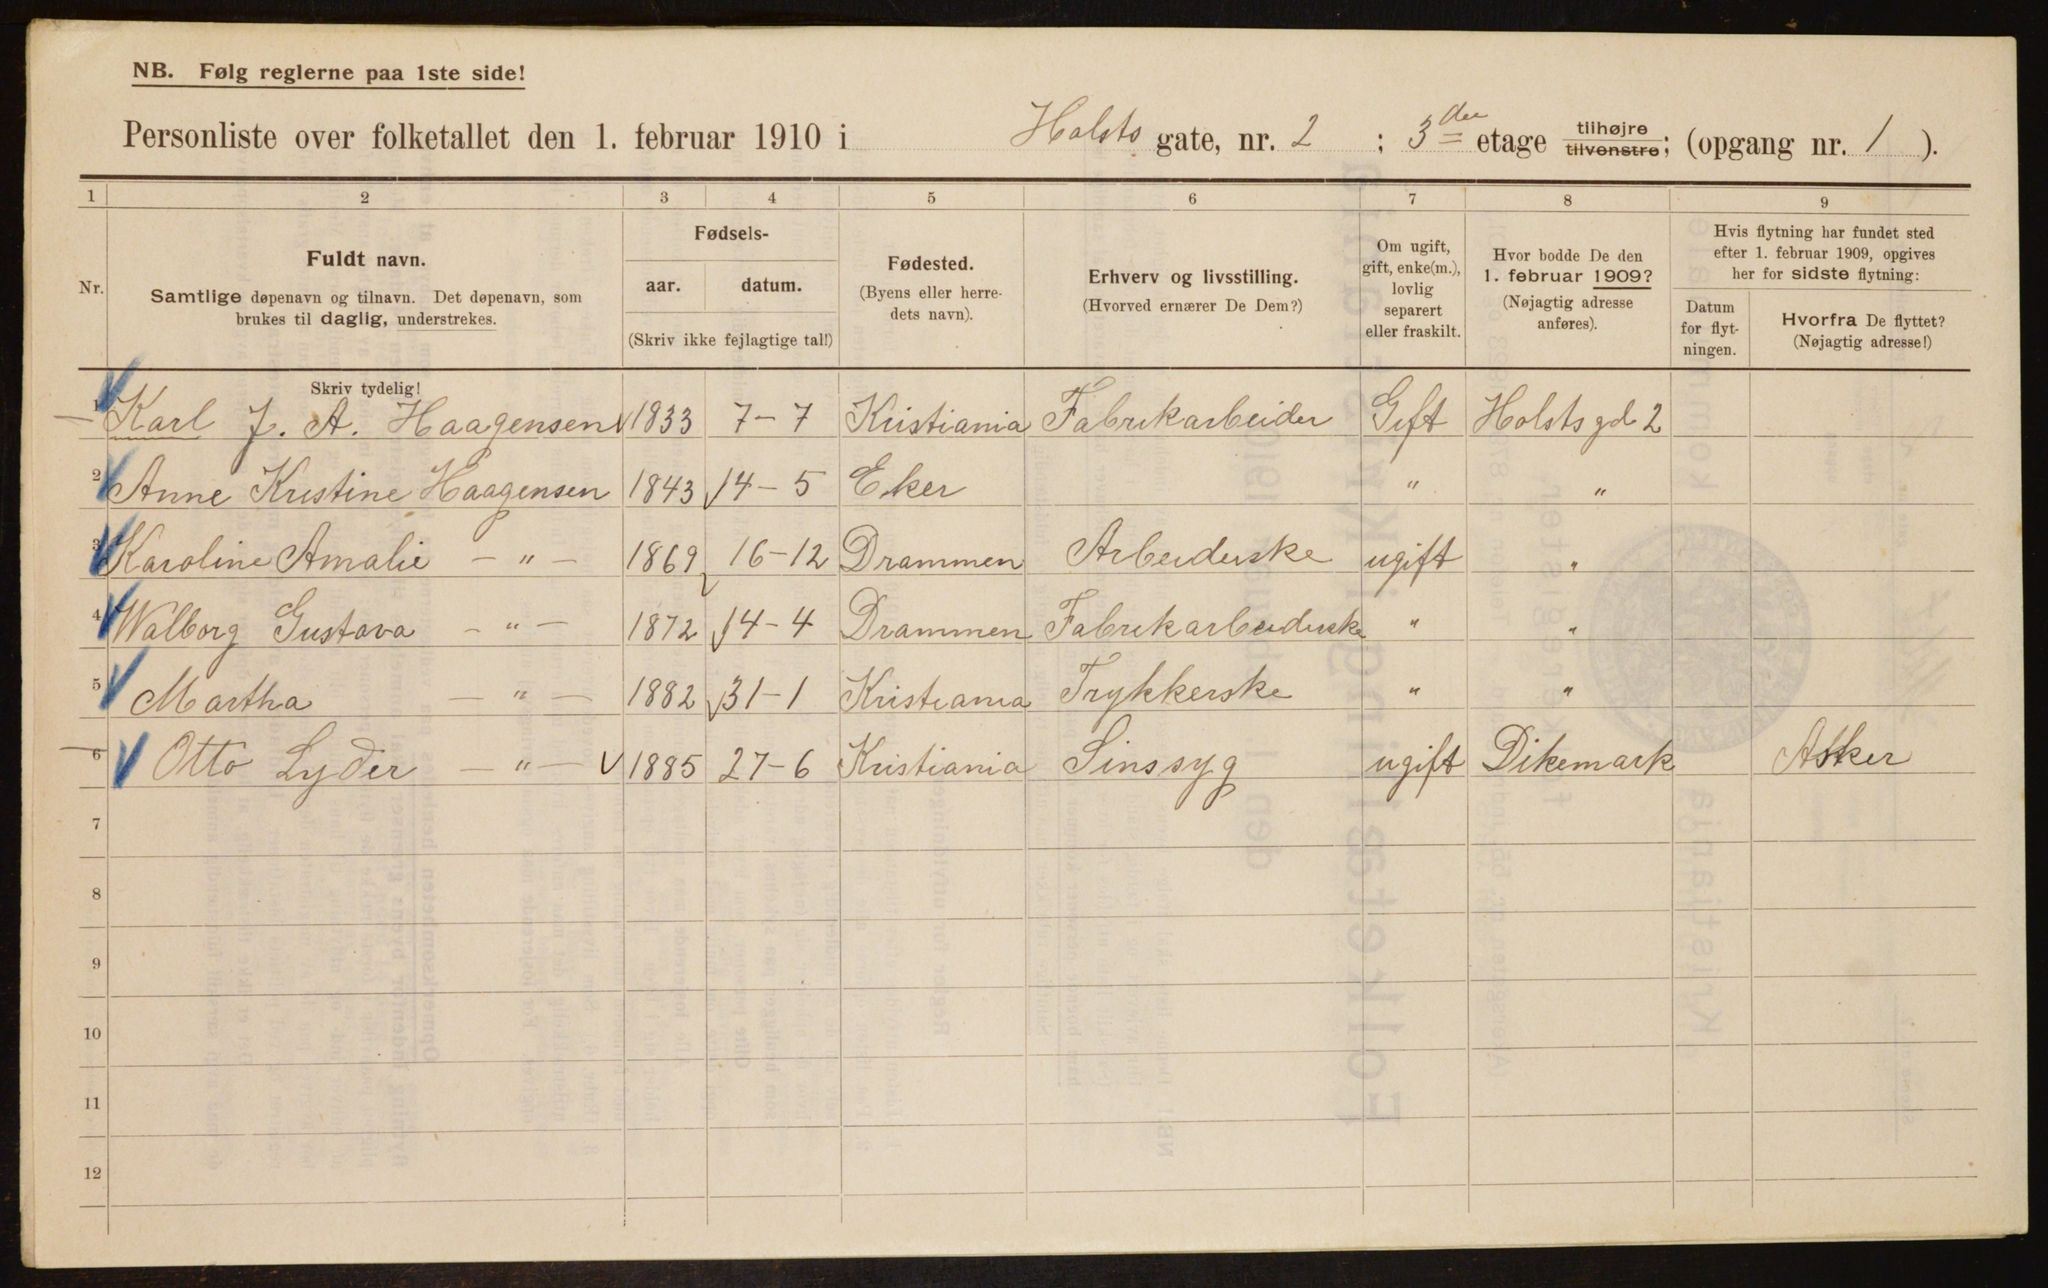 NB. Følg reglerne paa 1ste side!
Personliste over folketallet den 1. februar 1910 i Holsts gate, nr. 2 ; 3die etage tilhøjre tilvenstre; (opgang nr. 1 ).
1 2 3 4 5 6 7 8 9
Nr.
Fuldt navn.
Samtlige døpenavn og tilnavn. Det døpenavn, som
brukes til daglig, understrekes.
Fødsels-
aar. datum.
(Skriv ikke fejlagtige tal!)
Fødested.
(Byens eller herre-
dets navn).
Erhverv og livsstilling.
(Hvorved ernærer De Dem?)
Om ugift,
gift, enke(m.),
lovlig
separert
eller fraskilt.
Hvor bodde De den
1. februar 1909?
(Nøjagtig adresse
anføres).
Hvis flytning har fundet sted
efter 1. februar 1909, opgives
her for sidste flytning:
Datum
for flyt-
ningen.
Hvorfra De flyttet?
(Nøjagtig adresse!)
Skriv tydelig!
1 Karl J. A. Haagensen 1833 7-7 Kristiania Fabrikarbeider Gift Holsts gd 2
2 Anne Kristine Haagensen 1843 14-5 Eker " "
3 Karoline Amalie - " - 1869 16-12 Drammen Arbeiderske ugift "
4 Walborg Gustava - " - 1872 14-4 Drammen Fabrikarbeiderske " "
5 Martha - " - 1882 31-1 Kristiania Trykkerske " "
6 Otto Lyder - " - 1885 27-6 Kristiania Sinssyg ugift Dikemark Asker
7
8
9
10
11
12